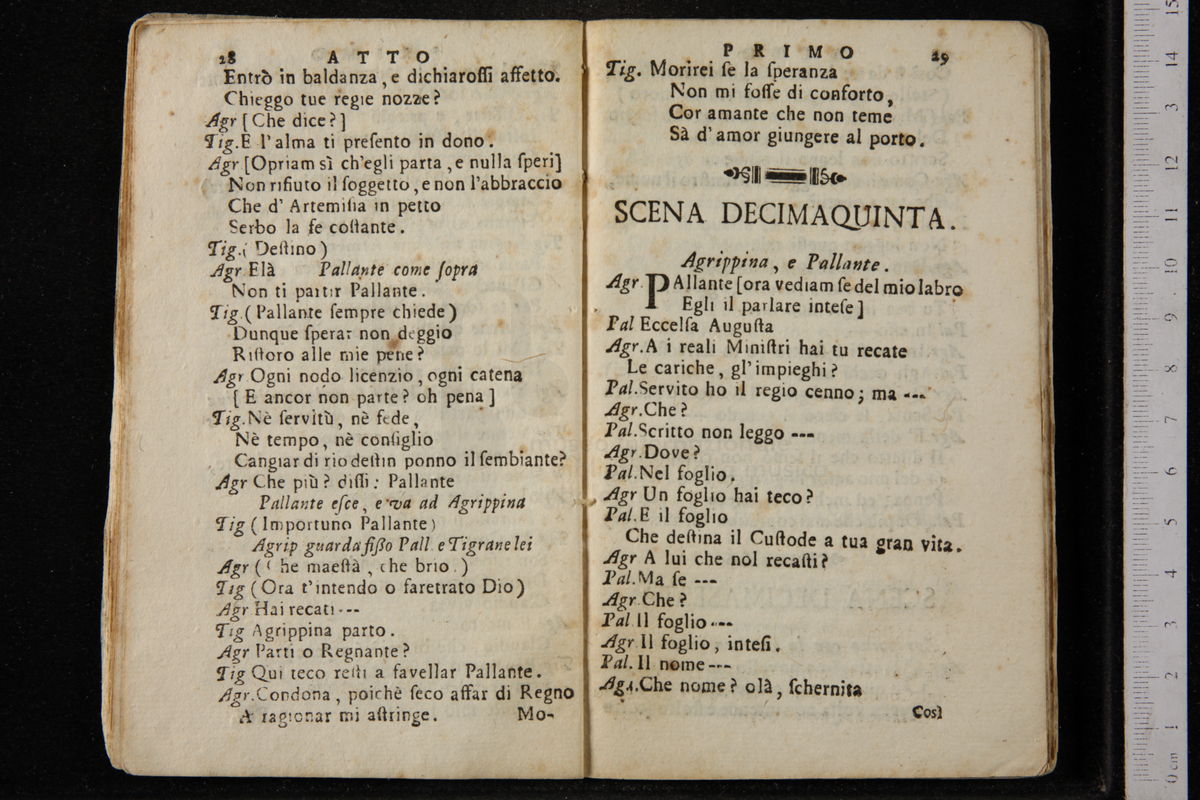 28 ATTO
Entrò in baldanza, e dichiaroſſi affetto.
Chieggo tue regie nozze?
Agr [Che dice?]
Tig.E l'alma ti preſento in dono.
Agr [Opriam sì ch'egli parta, e nulla ſperi]
Non rifiuto il ſoggetto, e non l'abbraccio
Che d' Artemiſia in petto
Serbo la fe coſtante.
Tig.( Deſtino)
Agr Elà Pallante come ſopra
Non ti partir Pallante.
Tig.(Pallante ſempre chiede)
Dunque ſperar non deggio
Riſtoro alle mie pene?
Agr Ogni nodo licenzio, ogni catena
[E ancor non parte? oh pena]
Tig.Nè ſervitù, nè fede,
Nè tempo, nè conſiglio
Cangiar di rio deſtin ponno il ſembiante?
Agr Che più? diſſi: Pallante
Pallante eſce, e va ad Agrippina
Tig (Importuno Pallante)
Agrip guarda fiſſo Pall. e Tigrane lei
Agr ( he maeſtà, che brio.)
Tig (Ora t'intendo o faretrato Dio)
Agr Hai recati ---
Tig Agrippina parto.
Agr Parti o Regnante?
Tig Qui teco reſti a favellar Pallante.
Agr.Condona, poichè ſeco affar di Regno
A ragionar mi aſtringe. Mo-
PRIMO 29
Tig. Morirei ſe la ſperanza
Non mi foſſe di conforto,
Cor amante che non teme
Sà d'amor giungere al porto.
SCENA DECIMAQUINTA.
Agrippina, e Pallante.
Agr. PAllante [ora vediam ſe del mio labro
Egli il parlare inteſe]
Pal Eccelſa Auguſta
Agr.A i reali Miniſtri hai tu recate
Le cariche, gl'impieghi?
Pal.Servito ho il regio cenno; ma ---
Agr.Che?
Pal.Scritto non leggo ---
Agr.Dove?
Pal.Nel foglio.
Agr Un foglio hai teco?
Pal.E il foglio
Che deſtina il Cuſtode a tua gran vita.
Agr A lui che nol recaſti?
Pal.Ma ſe ---
Agr.Che?
Pal Il foglio ---
Agr Il foglio, inteſi.
Pal. Il nome ---
Agr.Che nome? olà, ſchernita
Così
0 cm 1 2 3 4 5 6 7 8 9 10 11 12 13 14 15